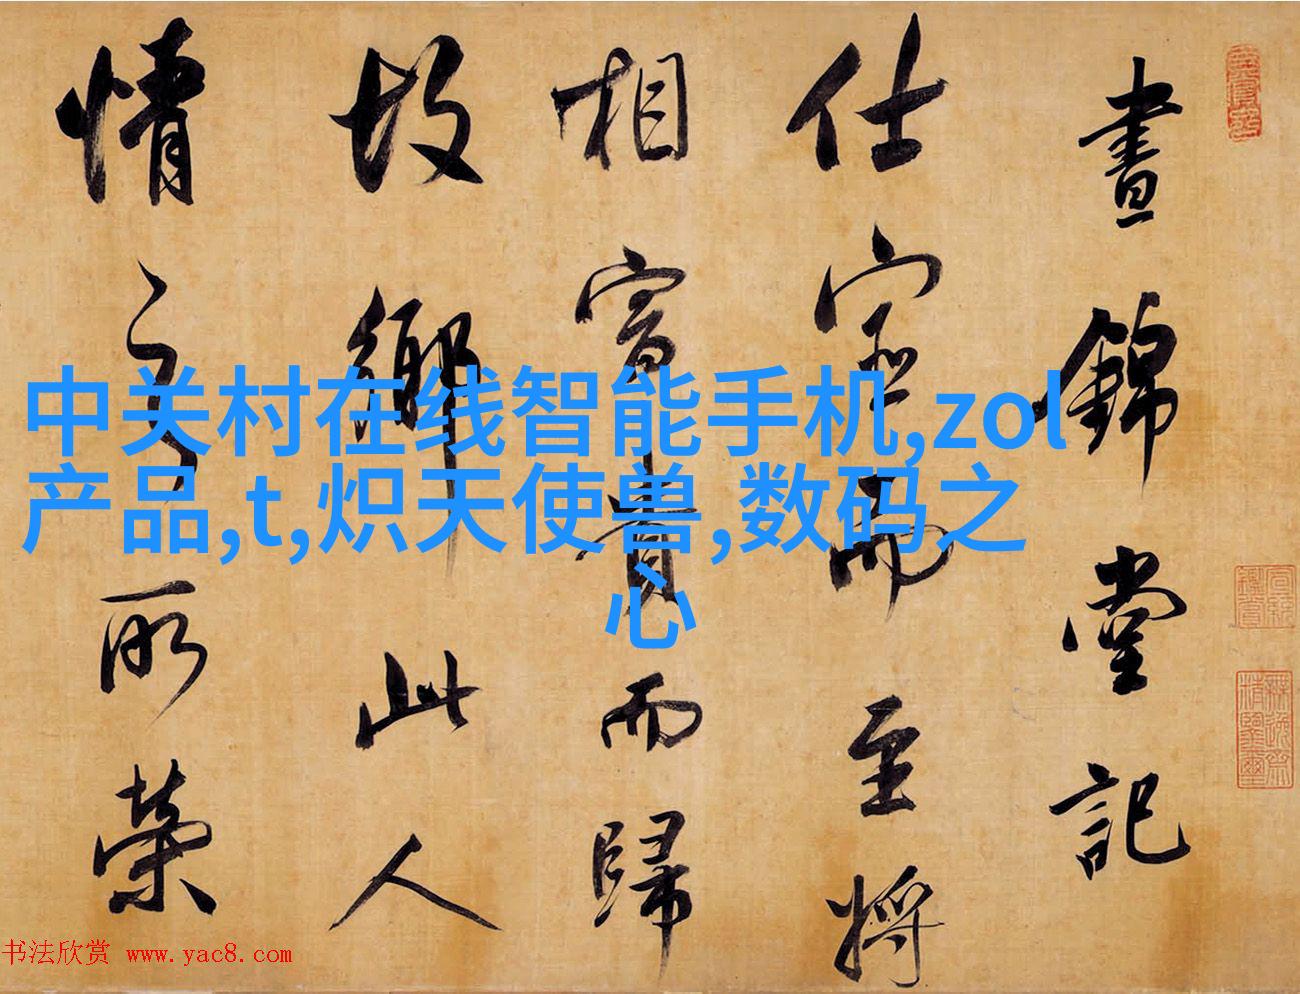 晝錦堂記
仕宦而至將
相富貴而歸
故鄉此人
情之所榮
中关村在线智能手机,zol
产品,t,炽天使兽,数码之
心
书法欣赏 www.yac8.com